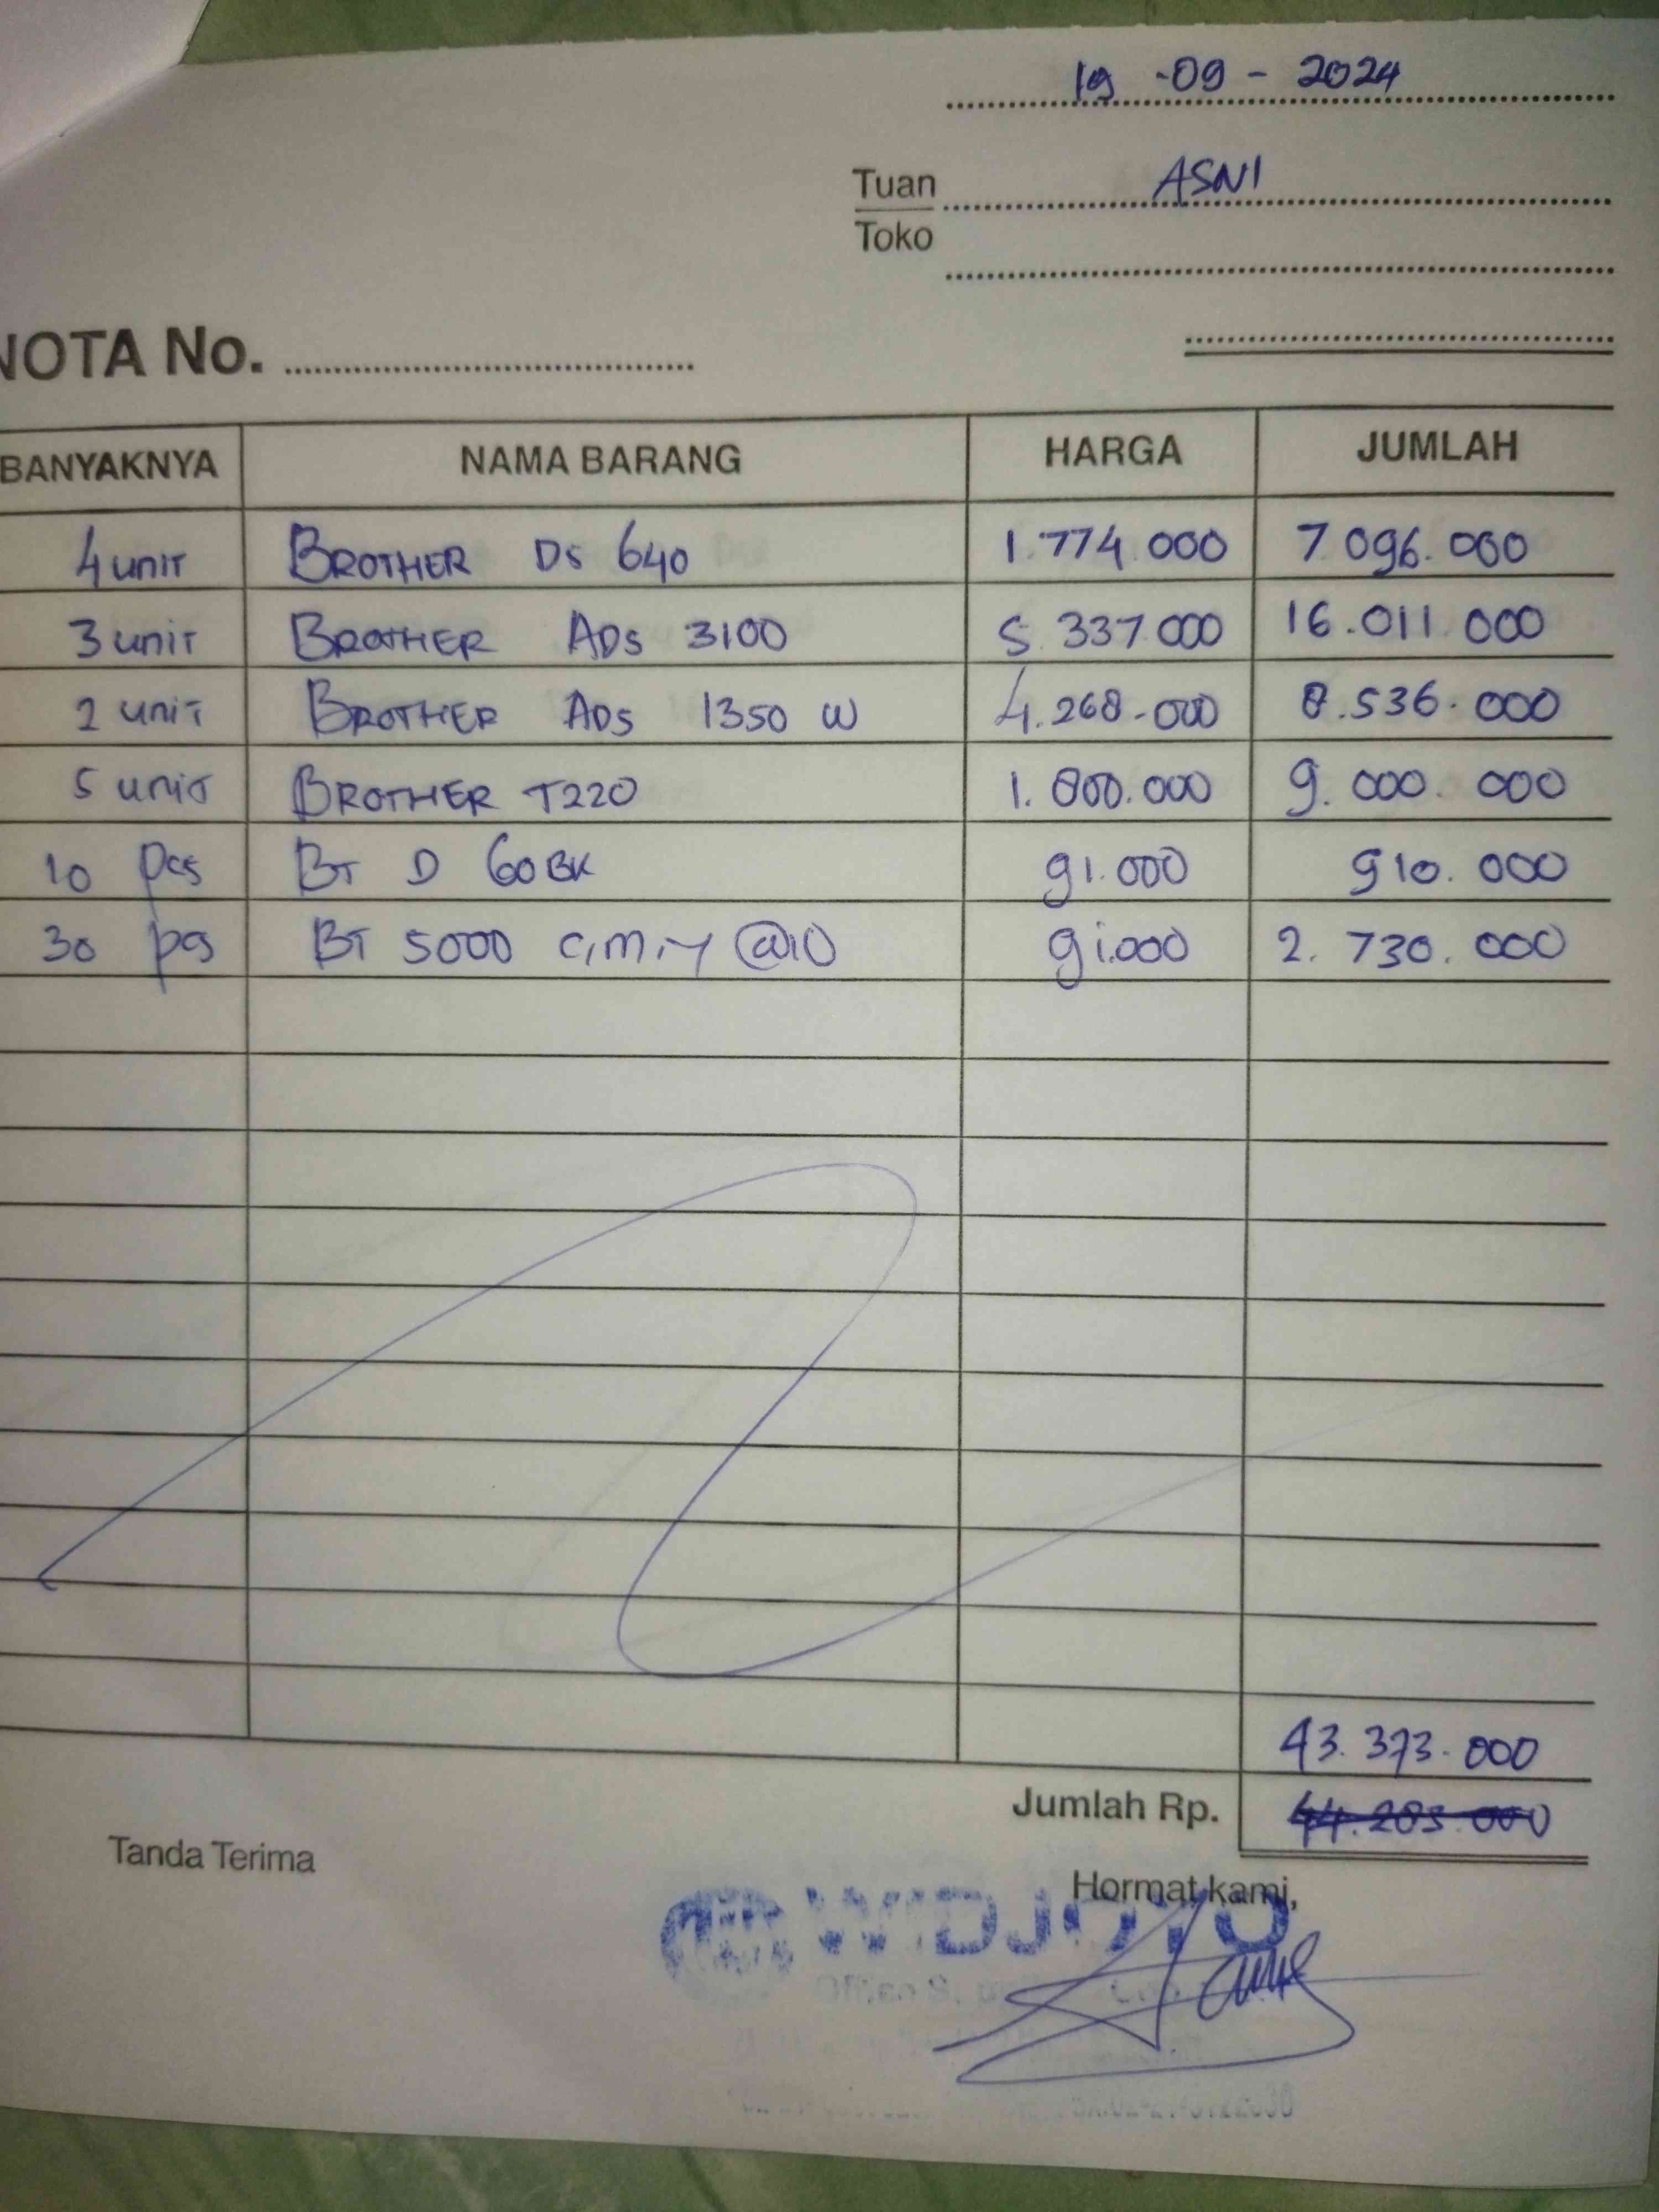 19 - 09 - 2024
Tuan ASNI
Toko
NOTA No.
BANYAKNYA NAMA BARANG HARGA JUMLAH
4 unit BROTHER DS 640 1.774.000 7.096.000
3 unit BROTHER ADS 3100 5.337.000 16.011.000
2 unit BROTHER ADS 1350 W 4.268.000 8.536.000
5 unit BROTHER T220 1.800.000 9.000.000
10 pcs BT D 60 BK 91.000 910.000
30 pcs BT 5000 C,M,Y @10 91.000 2.730.000
43.373.000
Jumlah Rp. 44.283.000
Tanda Terima
Hormat kami,
WIDJOJO